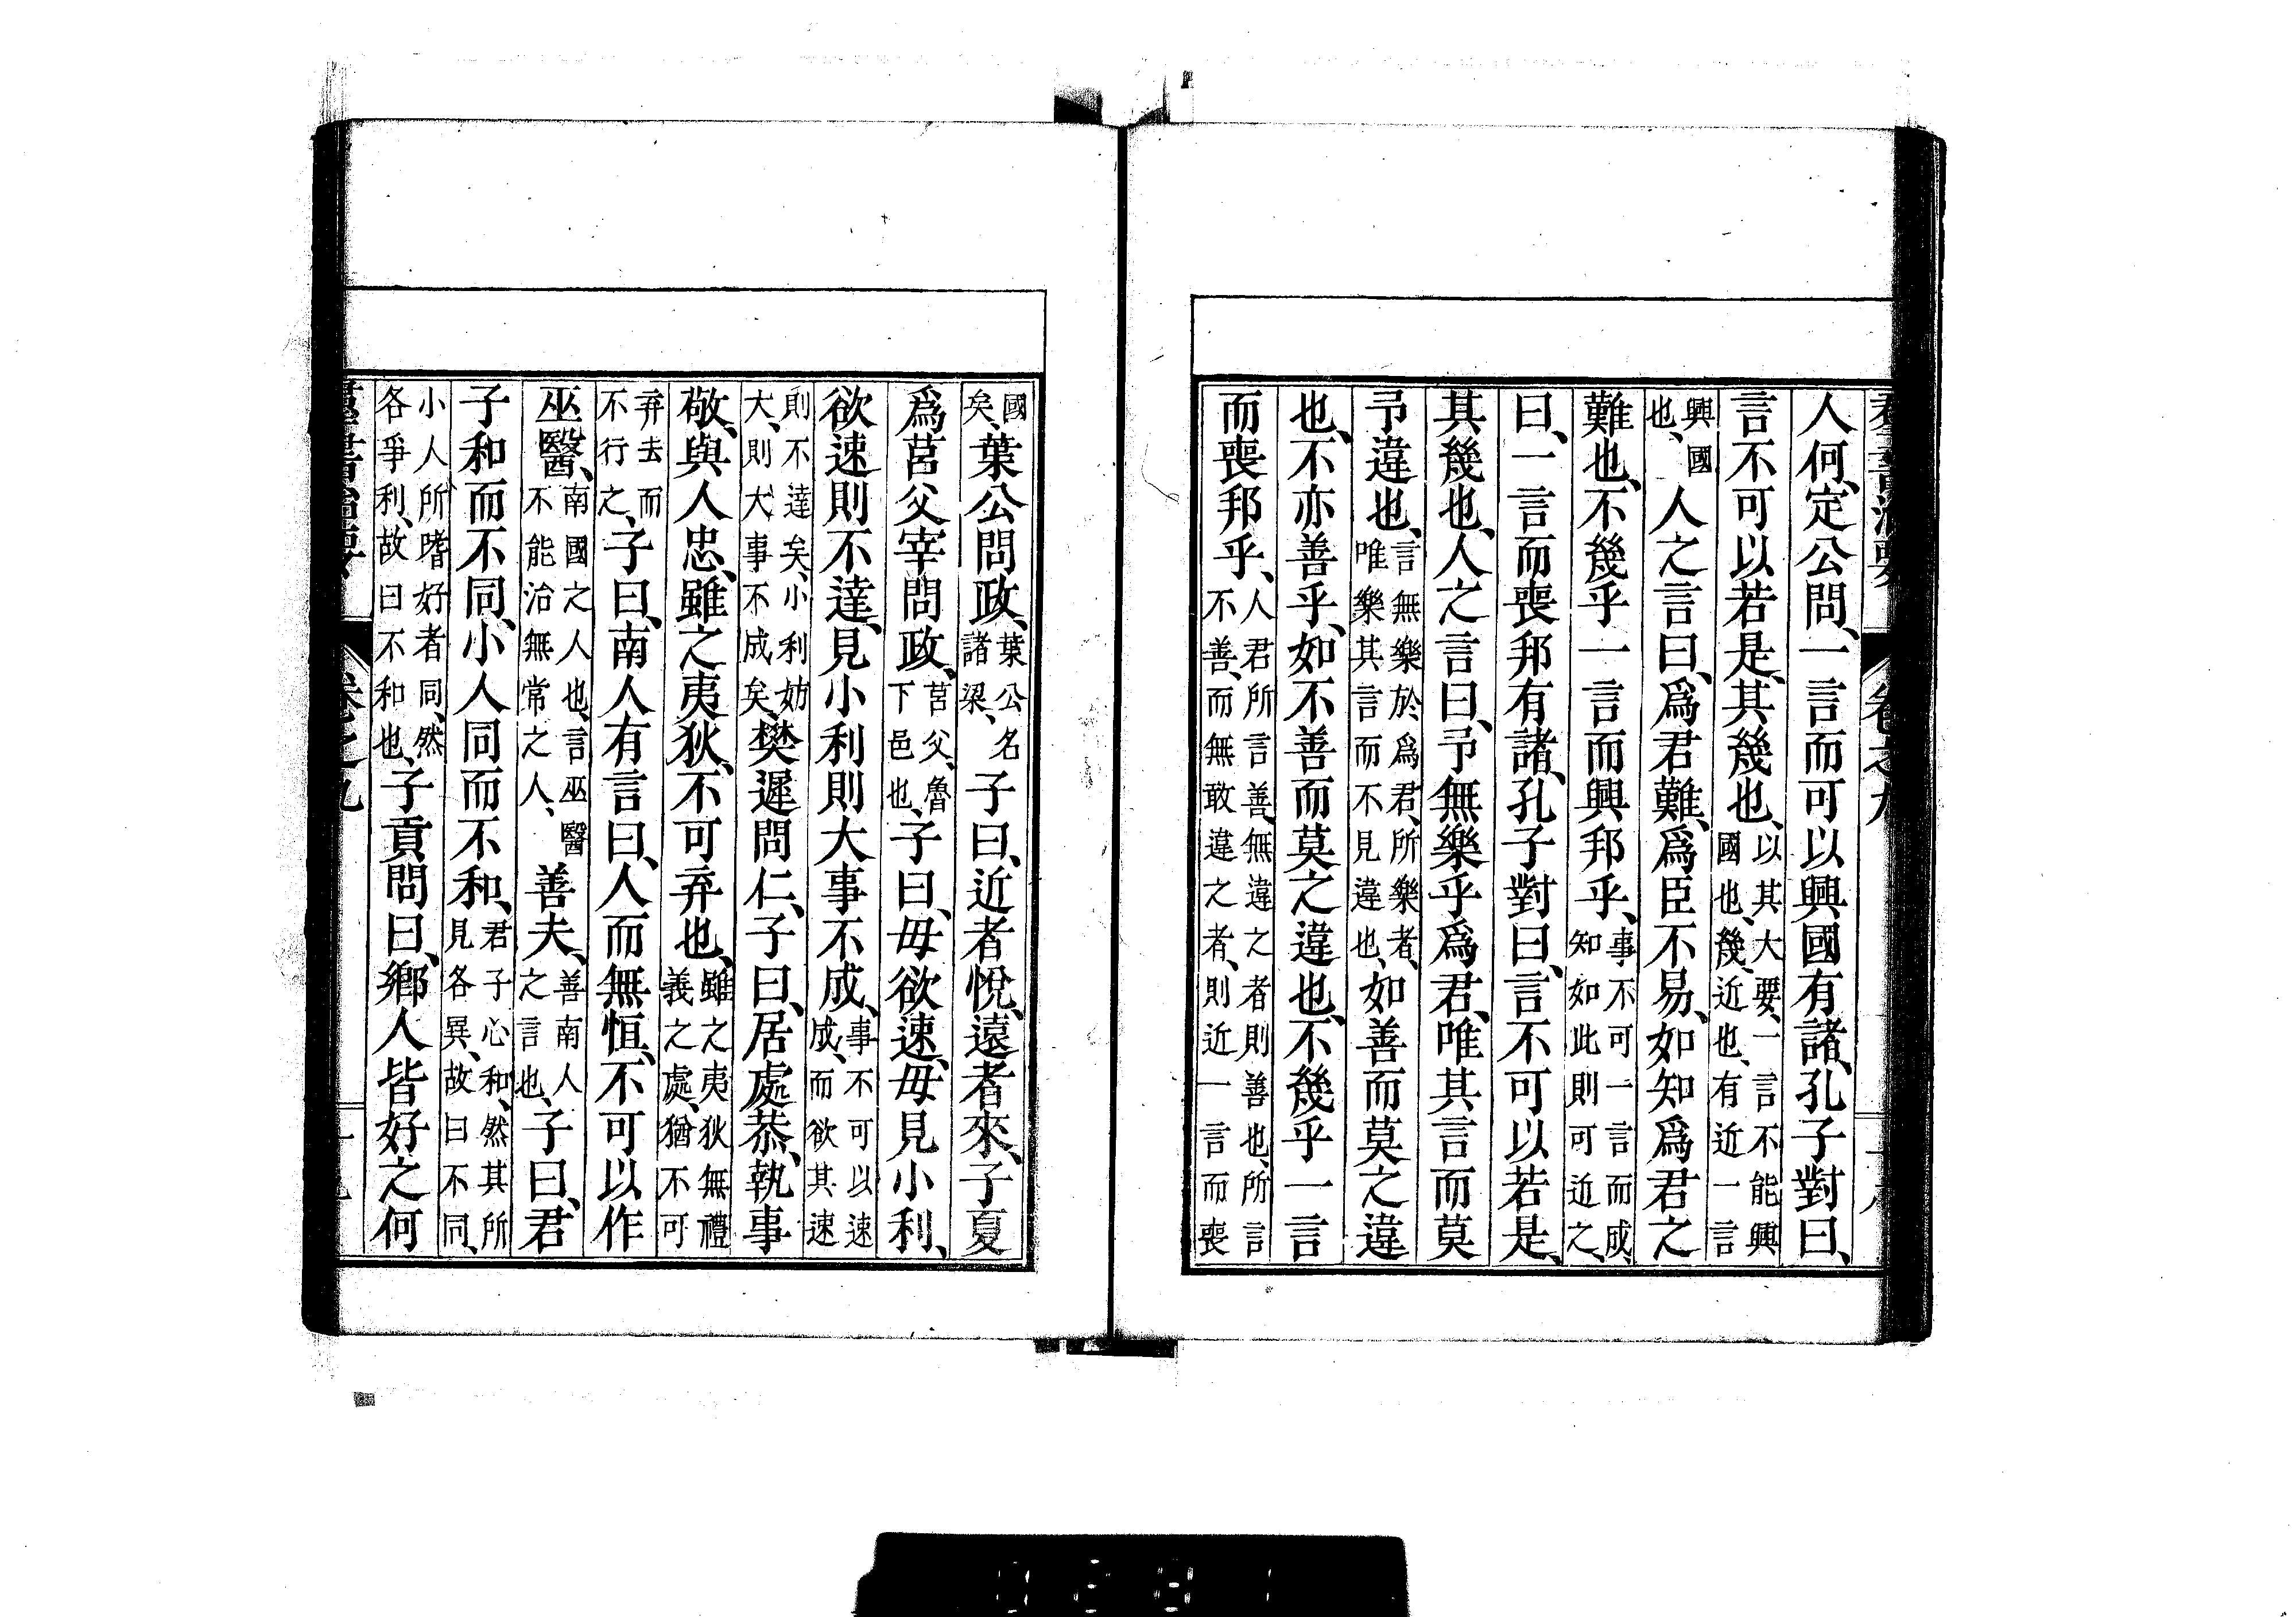 群書治要 卷之九
人何、定公問、一言而可以興國有諸、孔子對曰、
言不可以若是、其幾也、以其大要、一言不能興國也、幾、近也、有近一言
興國也、人之言曰、爲君難、爲臣不易、如知爲君之
難也、不幾乎一言而興邦乎、事不可一言而成、知如此則可近之、
曰、一言而喪邦有諸、孔子對曰、言不可以若是、
其幾也、人之言曰、予無樂乎爲君、唯其言而莫
予違也、言無樂於爲君、所樂者、唯樂其言而不見違也、如善而莫之違
也、不亦善乎、如不善而莫之違也、不幾乎一言
而喪邦乎、人君所言善、無違之者則善也、所言不善、而無敢違之者、則近一言而喪
國矣、葉公問政、葉公名諸梁、子曰、近者悅、遠者來、子夏
爲莒父宰問政、莒父、魯下邑也、子曰、毋欲速、毋見小利、
欲速則不達、見小利則大事不成、事不可以速成、而欲其速
則不達矣、小利妨大、則大事不成矣、樊遲問仁、子曰、居處恭、執事
敬、與人忠、雖之夷狄、不可弃也、雖之夷狄無禮義之處、猶不可
弃去而不行之、子曰、南人有言曰、人而無恒、不可以作
巫醫、南國之人也、言巫醫不能治無常之人、善夫、善南人之言也、子曰、君
子和而不同、小人同而不和、君子心和、然其所見各異、故曰不同、
小人所嗜好者同、然各爭利、故曰不和也、子貢問曰、鄉人皆好之何
群書治要 卷之九